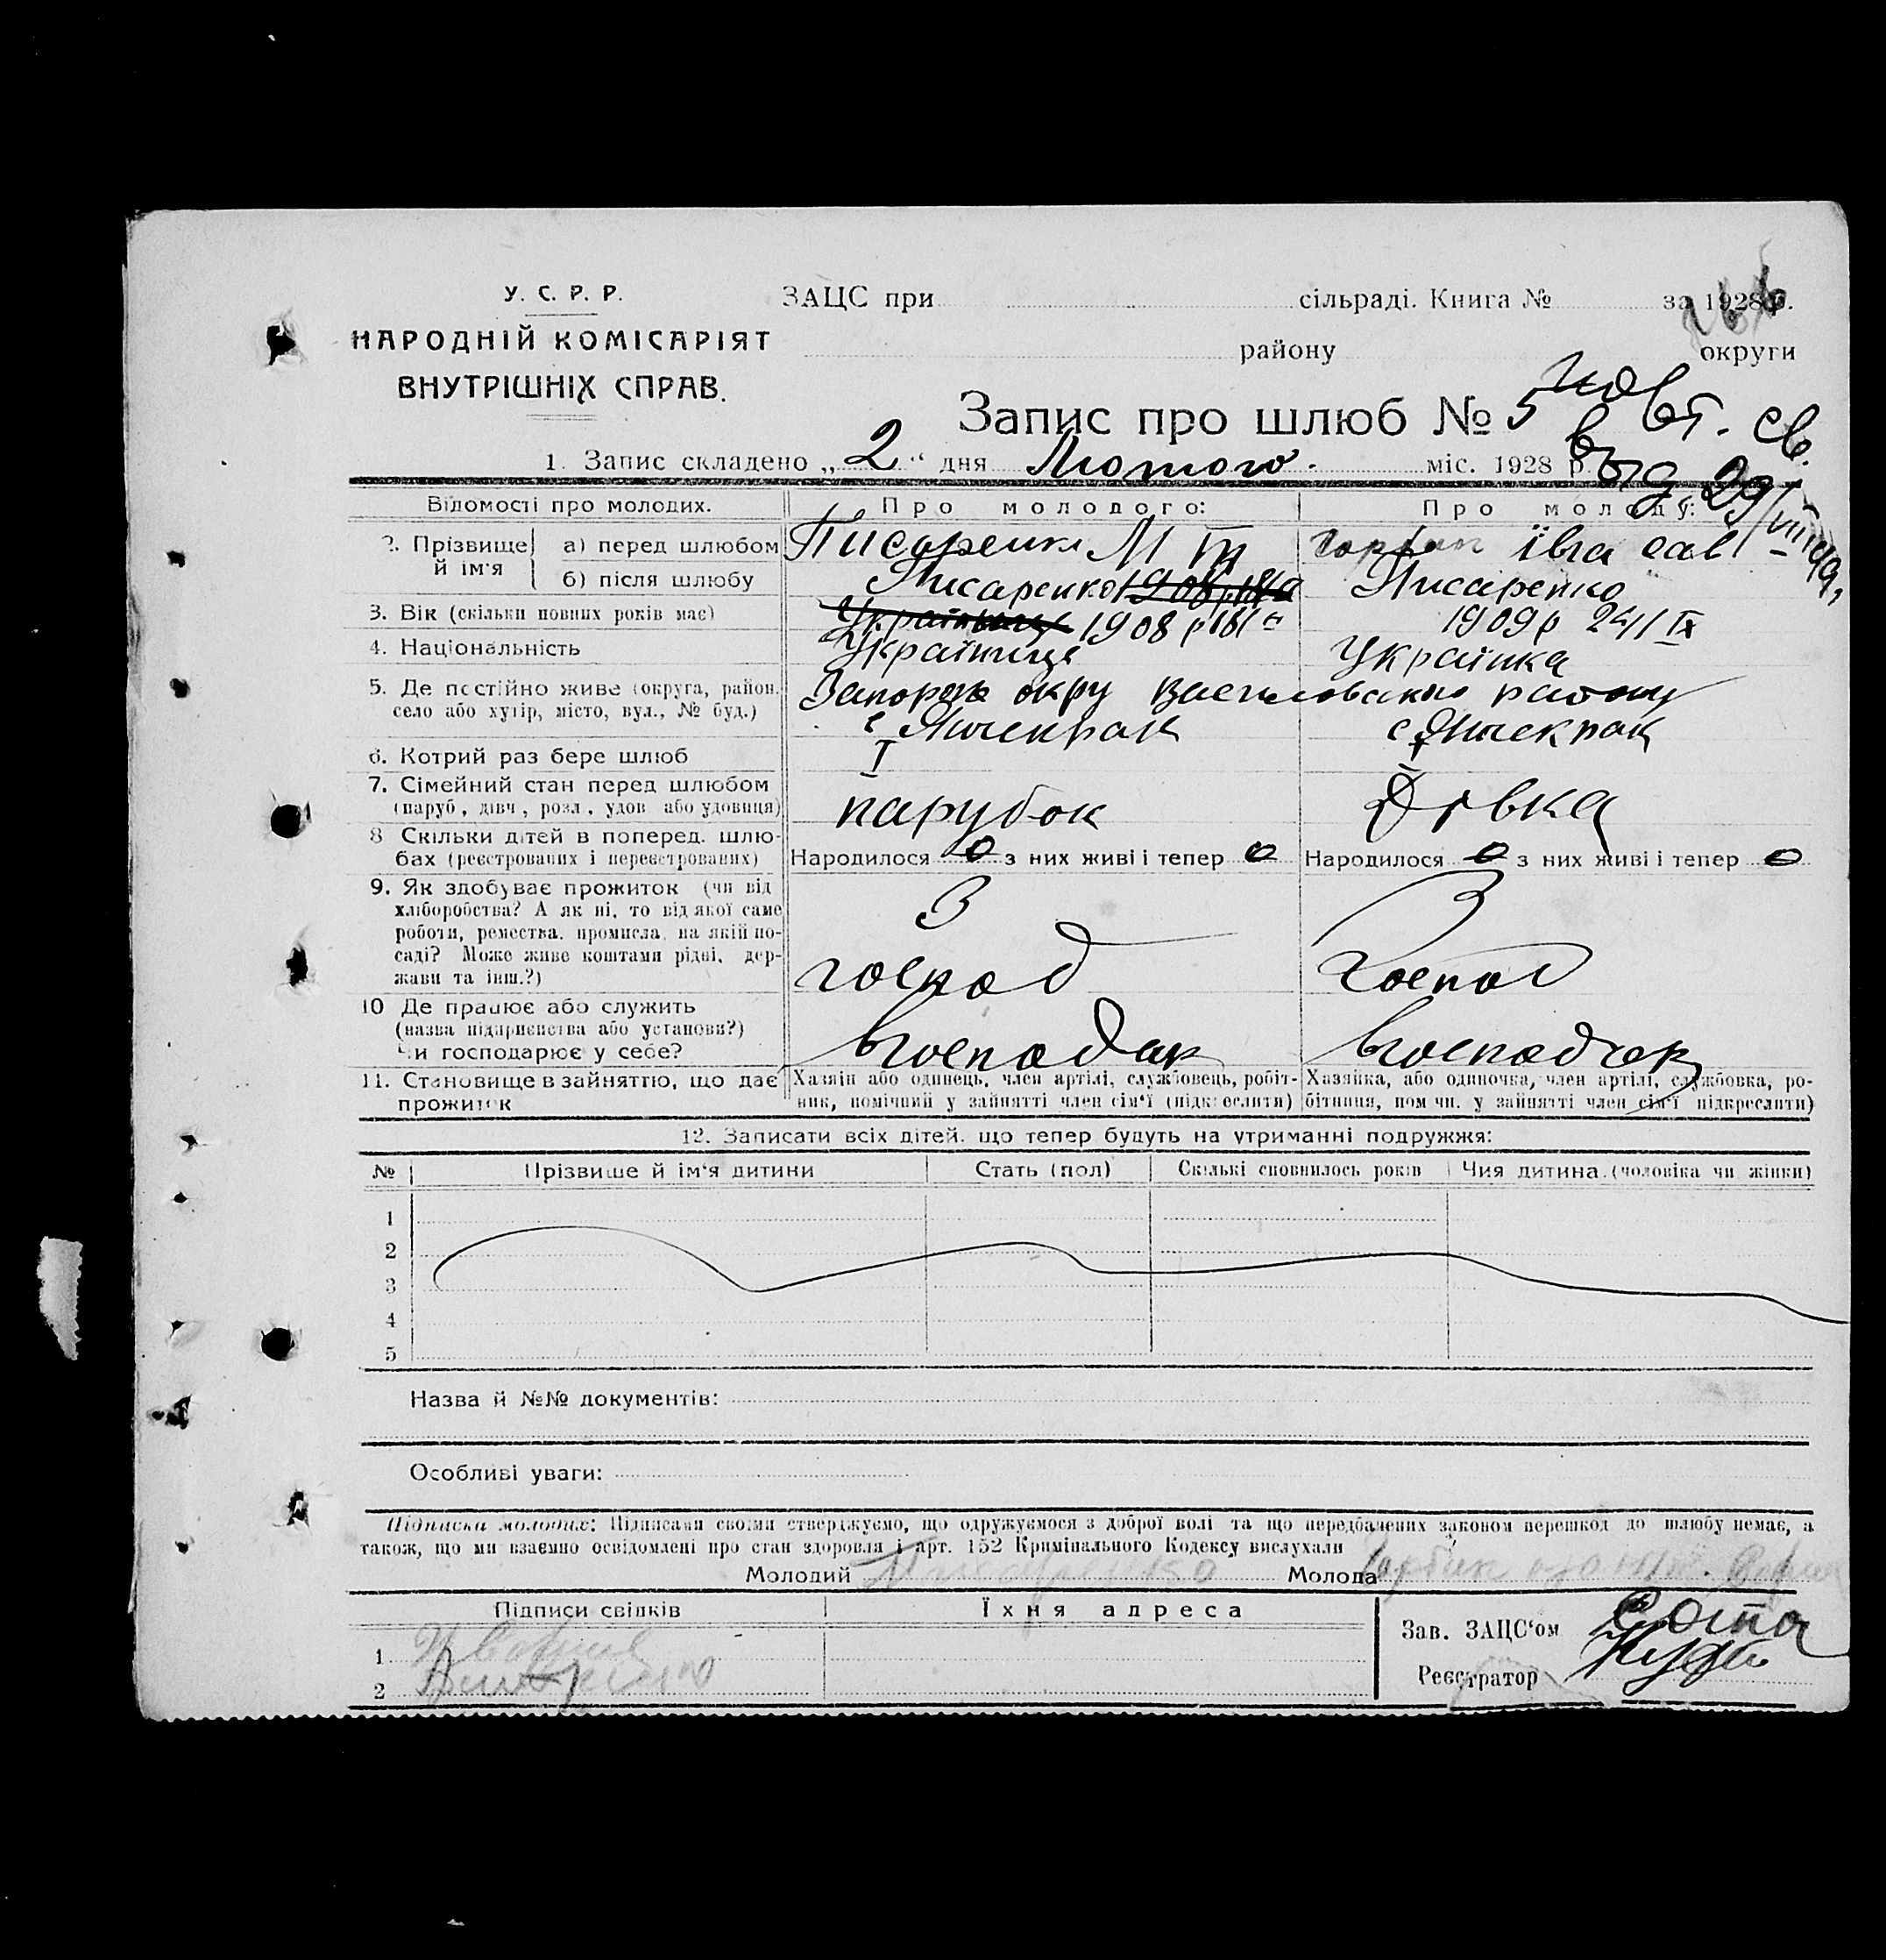 У. С. Р. Р.
НАРОДНІЙ КОМІСАРІЯТ
ВНУТРІШНІХ СПРАВ.
ЗАЦС при сільраді. Книга № за 1928 р.
району округи
Запис про шлюб № 5
повт. св.
1. Запис складено „2“ дня Лютого міс. 1928 р.
Відомості про молодих. Про молодого: Про молоду:
2. Прізвище й ім'я а) перед шлюбом Писаренко М Гр Івга сав
б) після шлюбу Писаренко Писаренко
3. Вік (скільки повних років має) 1908 р 1909 р 24/IX
4. Національність Українець Українка
5. Де постійно живе (округа, район, Запорозь окру Василовського району
село або хутір, місто, вул., № буд.) с Янчекрак с Янчекрак
6. Котрий раз бере шлюб I I
7. Сімейний стан перед шлюбом
(паруб., дівч., розл., удов. або удовиця) парубок Дівка
8 Скільки дітей в поперед. шлю-
бах (реєстрованих і нереєстрованих) Народилося 0 з них живі і тепер 0 Народилося 0 з них живі і тепер 0
9. Як здобуває прожиток (чи від
хліборобства? А як ні, то від якої саме
роботи, ремества, промисла, на якій по-
саді? Може живе коштами рідні, дер-
жави та інш.?) З господ З господ
10 Де працює або служить
(назва підприємства або установи?)
Чи господарює у себе?
11. Становище в зайняттю, що дає прожиток
Хазяїн або одинець, член артілі, службовець, робіт-
ник, помічний у зайнятті член сім'ї (підкреслити)
Хазяйка, або одиночка, член артілі, службовка, ро-
бітниця, помічн. у зайнятті член сім'ї підкреслити)
12. Записати всіх дітей, що тепер будуть на утриманні подружжя:
№ Прізвище й ім'я дитини Стать (пол) Скількі сповнилось років Чия дитина (чоловіка чи жінки)
1
2
3
4
5
Назва й №№ документів:
Особливі уваги:
Підписка молодих: Підписами своїми стверджуємо, що одружуємося з доброї волі та що передбачених законом перешкод до шлюбу немає, а
також, що ми взаємно освідомлені про стан здоровля і арт. 152 Кримінального Кодексу вислухали
Молодий Писаренко Молода
Підписи свідків Їхня адреса
1
2
Зав. ЗАЦС'ом
Реєстратор